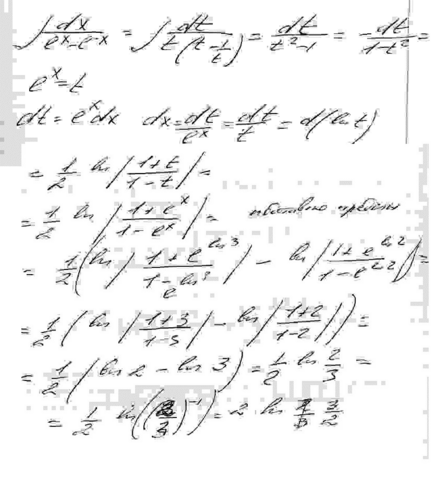 ∫ dx/(e^x - e^-x) = ∫ dt/(t(t - 1/t)) = dt/(t²-1) = -dt/(1-t²) =
e^x = t
dt = e^x dx dx = dt/e^x = dt/t = d(ln t)
= 1/2 ln |(1+t)/(1-t)| =
= 1/2 ln |(1+e^x)/(1-e^x)| = пределы
= 1/2 (ln |(1+e^ln3)/(1-e^ln3)| - ln |(1+e^ln2)/(1-e^ln2)|) =
= 1/2 (ln |(1+3)/(1-3)| - ln |(1+2)/(1-2)|) =
= 1/2 (ln 2 - ln 3) = 1/2 ln 2/3 =
= 1/2 ln((2/3)^-1) = 2 ln 3/2